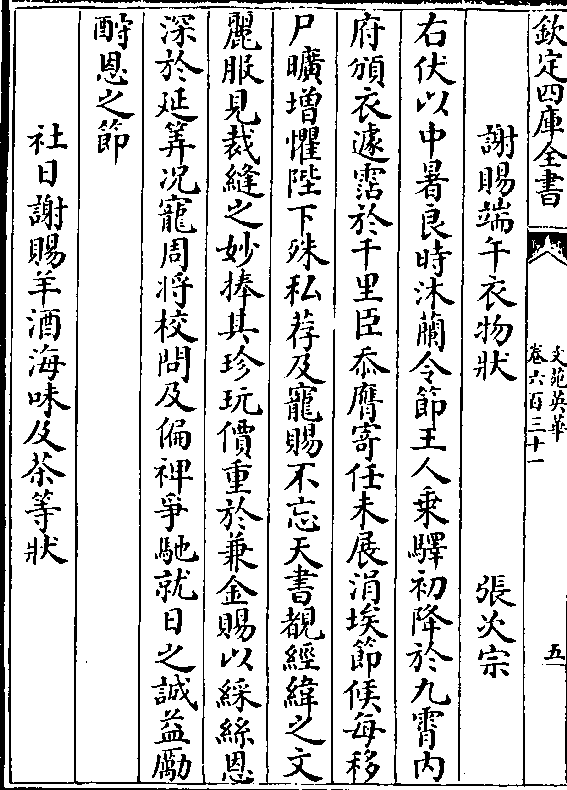 欽定四庫全書
文苑英華
卷六百三十一
五
謝賜端午衣物狀 張次宗
右伏以中暑良時沐蘭令節王人乗驛初降於九霄内
府頒衣遽霑於千里臣忝膺寄任未展涓埃節候每移
尸曠增懼陛下殊私荐及寵賜不忘天書覩經緯之文
麗服見裁縫之妙捧其珍玩價重於兼金賜以綵絲恩
深於延筭况寵周将校問及偏禆爭馳就日之誠益勵
酧恩之節
社日謝賜羊酒海味及茶等狀